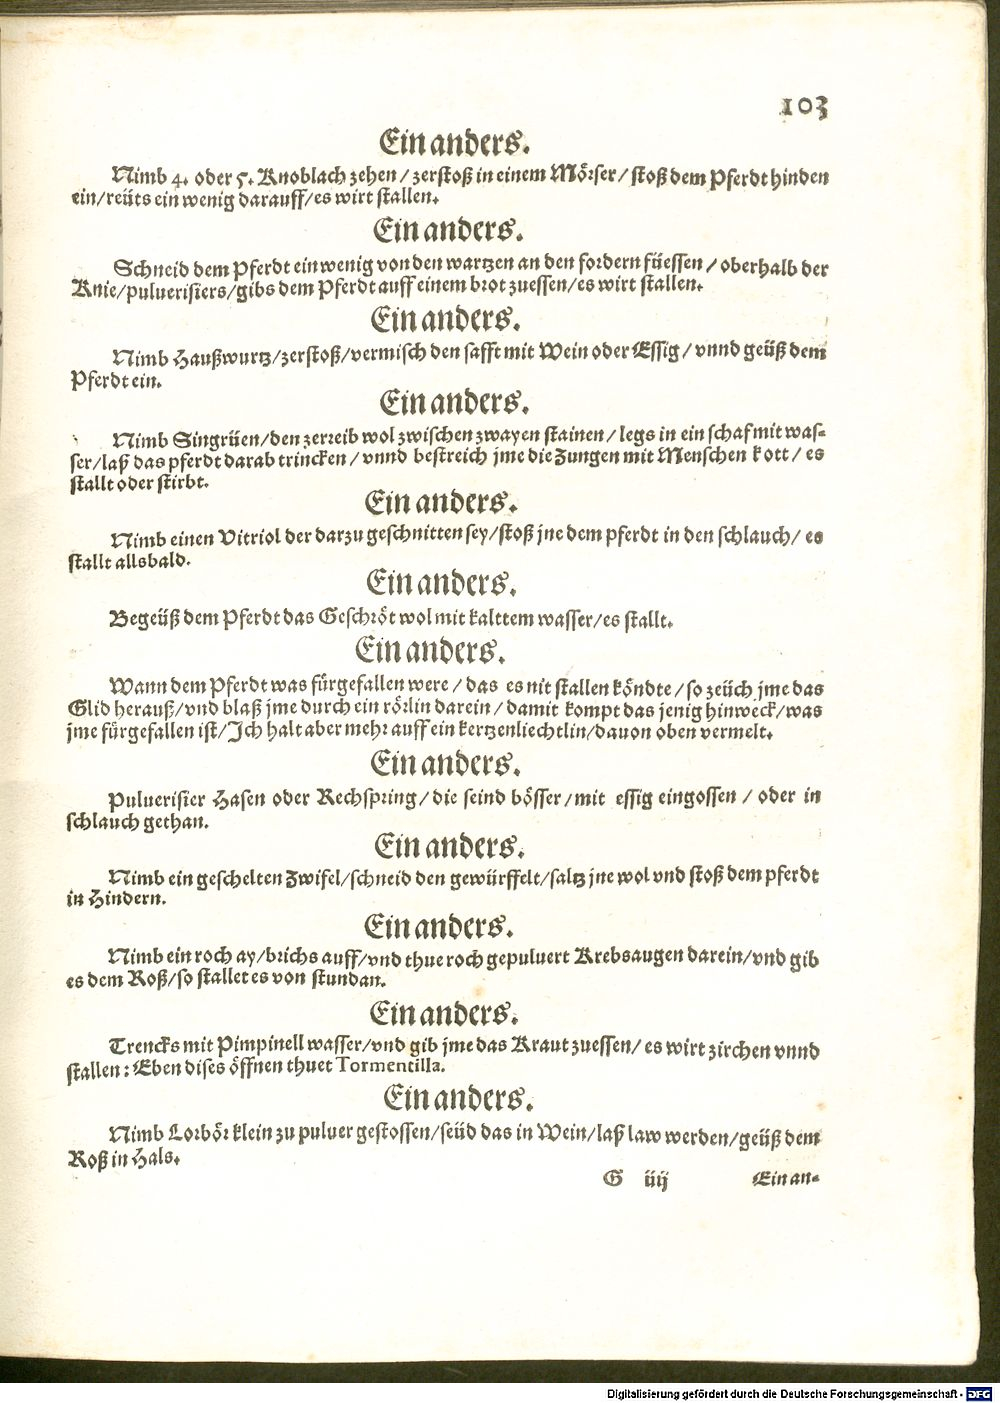 103
Ein anders.
Nimb 4. oder 5. Knoblach zehen / zerstoß in einem Mörser / stoß dem Pferdt hinden
ein/reüts ein wenig darauff/es wirt stallen.
Ein anders.
Schneid dem Pferdt ein wenig von den wartzen an den fordern füessen / oberhalb der
Knie/puluerisiers/gibs dem Pferdt auff einem brot zuessen/es wirt stallen.
Ein anders.
Nimb Haußwurtz/zerstoß/vermisch den safft mit Wein oder Essig / vnnd geüß dem
Pferdt ein.
Ein anders.
Nimb Singrüen/den zerreib wol zwischen zwayen stainen / legs in ein schaf mit was-
ser/laß das pferdt darab trincken / vnnd bestreich jme die Zungen mit Menschen kott / es
stallt oder stirbt.
Ein anders.
Nimb einen Vitriol der darzu geschnitten sey/stoß jne dem pferdt in den schlauch/ es
stallt allsbald.
Ein anders.
Begeüß dem Pferdt das Geschröt wol mit kalttem wasser/es stallt.
Ein anders.
Wann dem Pferdt was fürgefallen were / das es nit stallen köndte / so zeüch jme das
Glid herauß/vnd blaß jme durch ein rörlin darein / damit kompt das jenig hinweck/was
jme fürgefallen ist/Ich halt aber mehr auff ein kertzenliechtlin/dauon oben vermelt.
Ein anders.
Puluerisier Hasen oder Rechspring/die seind bösser/mit essig eingossen / oder in
schlauch gethan.
Ein anders.
Nimb ein geschelten Zwifel/schneid den gewürffelt/saltz jne wol vnd stoß dem pferdt
in Hindern.
Ein anders.
Nimb ein roch ay/brichs auff/vnd thue roch gepuluert Krebsaugen darein/vnd gib
es dem Roß/so stallet es von stundan.
Ein anders.
Trencks mit Pimpinell wasser/vnd gib jme das Kraut zuessen/ es wirt zirchen vnnd
stallen: Eben dises öffnen thuet Tormentilla.
Ein anders.
Nimb Lorbör klein zu puluer gestossen/seüd das in Wein/laß law werden/geüß dem
Roß in Hals.
G iiij Ein an-
Digitalisierung gefördert durch die Deutsche Forschungsgemeinschaft - DFG